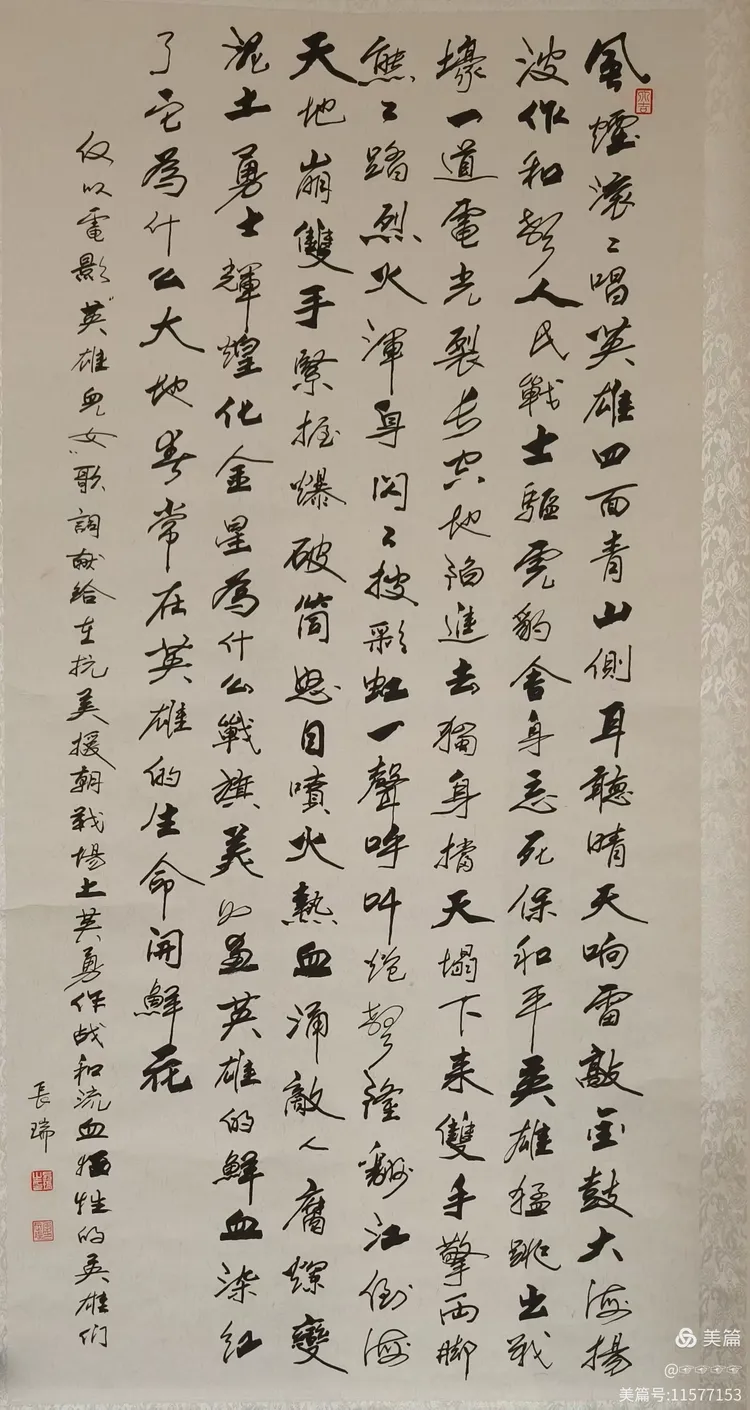 風煙滾々唱英雄四面青山側耳聽晴天响雷敲金鼓大海揚
波作和聲人民戰士驅虎豹舍身忘死保和平英雄猛跳出戰
壕一道電光裂長空地陷進去獨身擋天塌下来雙手擎兩脚
熊々踏烈火渾身閃々披彩虹一聲呼叫炮聲隆翻江倒海
天地崩雙手緊握爆破筒怒目噴火熱血涌敵人腐爛變
泥土勇士輝煌化金星為什么戰旗美如畫英雄的鮮血染红
了它為什么大地春常在英雄的生命開鮮花
仅以電影"英雄兒女"歌詞献给在抗美援朝戰場上英勇作战和流血牺牲的英雄们
長瑞
美篇
@☞☞☞☞
美篇号:11577153